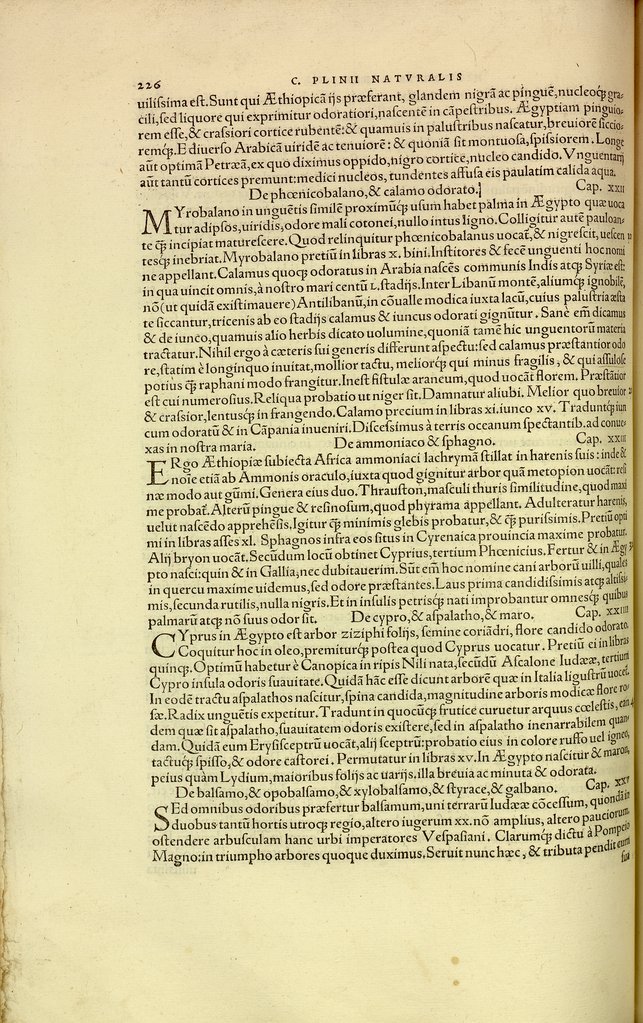 226
C. PLINII NATVRALIS
uilissima est. Sunt qui Æthiopicā ijs præferant, glandem nigrā ac pinguē, nucleoq́ꝫ gra-
cili, sed liquore qui exprimitur odoratiori, nascentē in cāpestribus. Ægyptiam pinguio-
rem esse, & crassiori cortice rubentē: & quamuis in palustribus nascatur, breuiorē siccio-
remq́ꝫ. E diuerso Arabicā uiridē ac tenuiorē: & quoniā sit montuosa, spissiorem. Longe
aūt optimā Petræā, ex quo diximus oppido, nigro cortice, nucleo candido. Vnguentarij
aūt tantū cortices premunt: medici nucleos, tundentes affusa eis paulatim calida aqua.
De phœnicobalano, & calamo odorato. Cap. XXII
MYrobalano in unguētis similē proximūq́ꝫ usum habet palma in Ægypto quæ uoca
tur adipsos, uiridis, odore mali cotonei, nullo intus ligno. Colligitur autē pauloan-
te q̄ꝫ incipiat maturescere. Quod relinquitur phœnicobalanus uocat̄, & nigrescit, uescen
tesq́ꝫ inebriat. Myrobalano pretiū in libras x. bini. Institores & fecē unguenti hoc nomi
ne appellant. Calamus quoq́ꝫ odoratus in Arabia nascēs communis Indis atq́ꝫ Syriæ est:
in qua uincit omnis, à nostro mari centū L. stadijs. Inter Libanū montē, aliumq́ꝫ ignobilē,
nō (ut quidā existimauere) Antilibanū, in cōualle modica iuxta lacū, cuius palustria æsta
te siccantur, tricenis ab eo stadijs calamus & iuncus odorati gignūtur. Sanè em̄ dicamus
& de iunco, quamuis alio herbis dicato uolumine, quoniā tamē hic unguentorū materia
tractatur. Nihil ergo à cæteris sui generis differunt aspectu: sed calamus præstantior odo
re, statim è longinquo inuitat, mollior tactu, meliorq́ꝫ qui minus fragilis, & qui assulose
potius q̄ꝫ raphani modo frangitur. Inest fistulæ araneum, quod uocāt florem. Præstātior
est cui numerosius. Reliqua probatio ut niger sit. Damnatur aliubi. Melior quo breuior
& crassior, lentusq́ꝫ in frangendo. Calamo precium in libras xi. iunco xv. Traduntq́ꝫ iun
cum odoratū & in Cāpania inueniri. Discessimus à terris oceanum spectantib. ad conue-
xas in nostra maria. De ammoniaco & sphagno. Cap. XXIII
ERgo Æthiopiæ subiecta Africa ammoniaci lachrymā stillat in harenis suis: inde &
noīe etiā ab Ammonis oraculo, iuxta quod gignitur arbor quā metopion uocāt: resi
næ modo aut gūmi. Genera eius duo. Thrauston, masculi thuris similitudine, quod maxi
me probat̄. Alterū pingue & resinosum, quod phyrama appellant. Adulteratur harenis,
uelut nascēdo apprehensis. Igitur q̄ꝫ minimis glebis probatur, & q̄ꝫ purissimis. Pretiū opti
mi in libras asses xl. Sphagnos infra eos situs in Cyrenaica prouincia maxime probatur.
Alij bryon uocāt. Secūdum locū obtinet Cyprius, tertium Phœnicius. Fertur & in Ægy
pto nasci: quin & in Gallia, nec dubitauerim. Sūt em̄ hoc nomine cani arborū uilli, quales
in quercu maxime uidemus, sed odore præstantes. Laus prima candidissimis atq́ꝫ altissi-
mis, secunda rutilis, nulla nigris. Et in insulis petrisq́ꝫ nati improbantur omnesq́ꝫ quibus
palmarū atq́ꝫ nō suus odor sit. De cypro, & aspalatho, & maro. Cap. XXIIII
CYprus in Ægypto est arbor ziziphi folijs, semine coriādri, flore candido odorato.
Coquitur hoc in oleo, premiturq́ꝫ postea quod Cyprus uocatur. Pretiū ei in libras
quinq́ꝫ. Optimū habetur è Canopica in ripis Nili nata, secūdū Ascalone Iudææ, tertium
Cypro insula odoris suauitate. Quidā hāc esse dicunt arborē quæ in Italia ligustrū uocet̄.
In eodē tractu aspalathos nascitur, spina candida, magnitudine arboris modicæ flore ro-
sæ. Radix unguētis expetitur. Tradunt in quocūq́ꝫ frutice curuetur arquus cœlestis, ean
dem quæ sit aspalatho, suauitatem odoris existere, sed in aspalatho inenarrabilem quan-
dam. Quidā eum Erysisceptrū uocāt, alij sceptrū: probatio eius in colore ruffo uel igneo,
tactuq́ꝫ spisso, & odore castorei. Permutatur in libras xv. In Ægypto nascitur & maron,
peius quàm Lydium, maioribus folijs ac uarijs. illa breuia ac minuta & odorata.
De balsamo, & opobalsamo, & xylobalsamo, & styrace, & galbano. Cap. XXV
SEd omnibus odoribus præfertur balsamum, uni terrarū Iudææ cōcessum, quondā in
duobus tantū hortis utroq́ꝫ regio, altero iugerum xx. nō amplius, altero pauciorum.
ostendere arbusculam hanc urbi imperatores Vespasiani. Clarumq́ꝫ dictu à Pompeio
Magno: in triumpho arbores quoque duximus. Seruit nunc hæc, & tributa pendit cum
sua